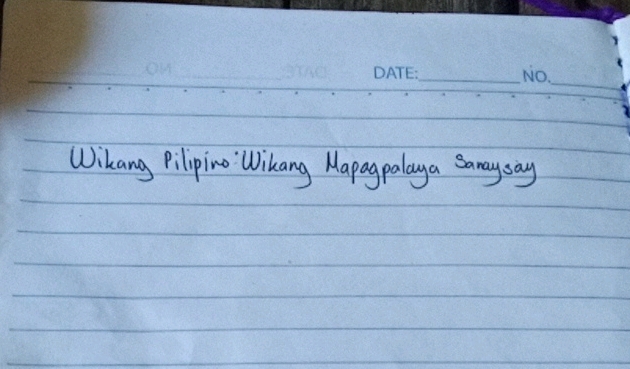 DATE:__________ NO.______
Wikang Pilipino: Wikang Mapagpalaya Sanaysay